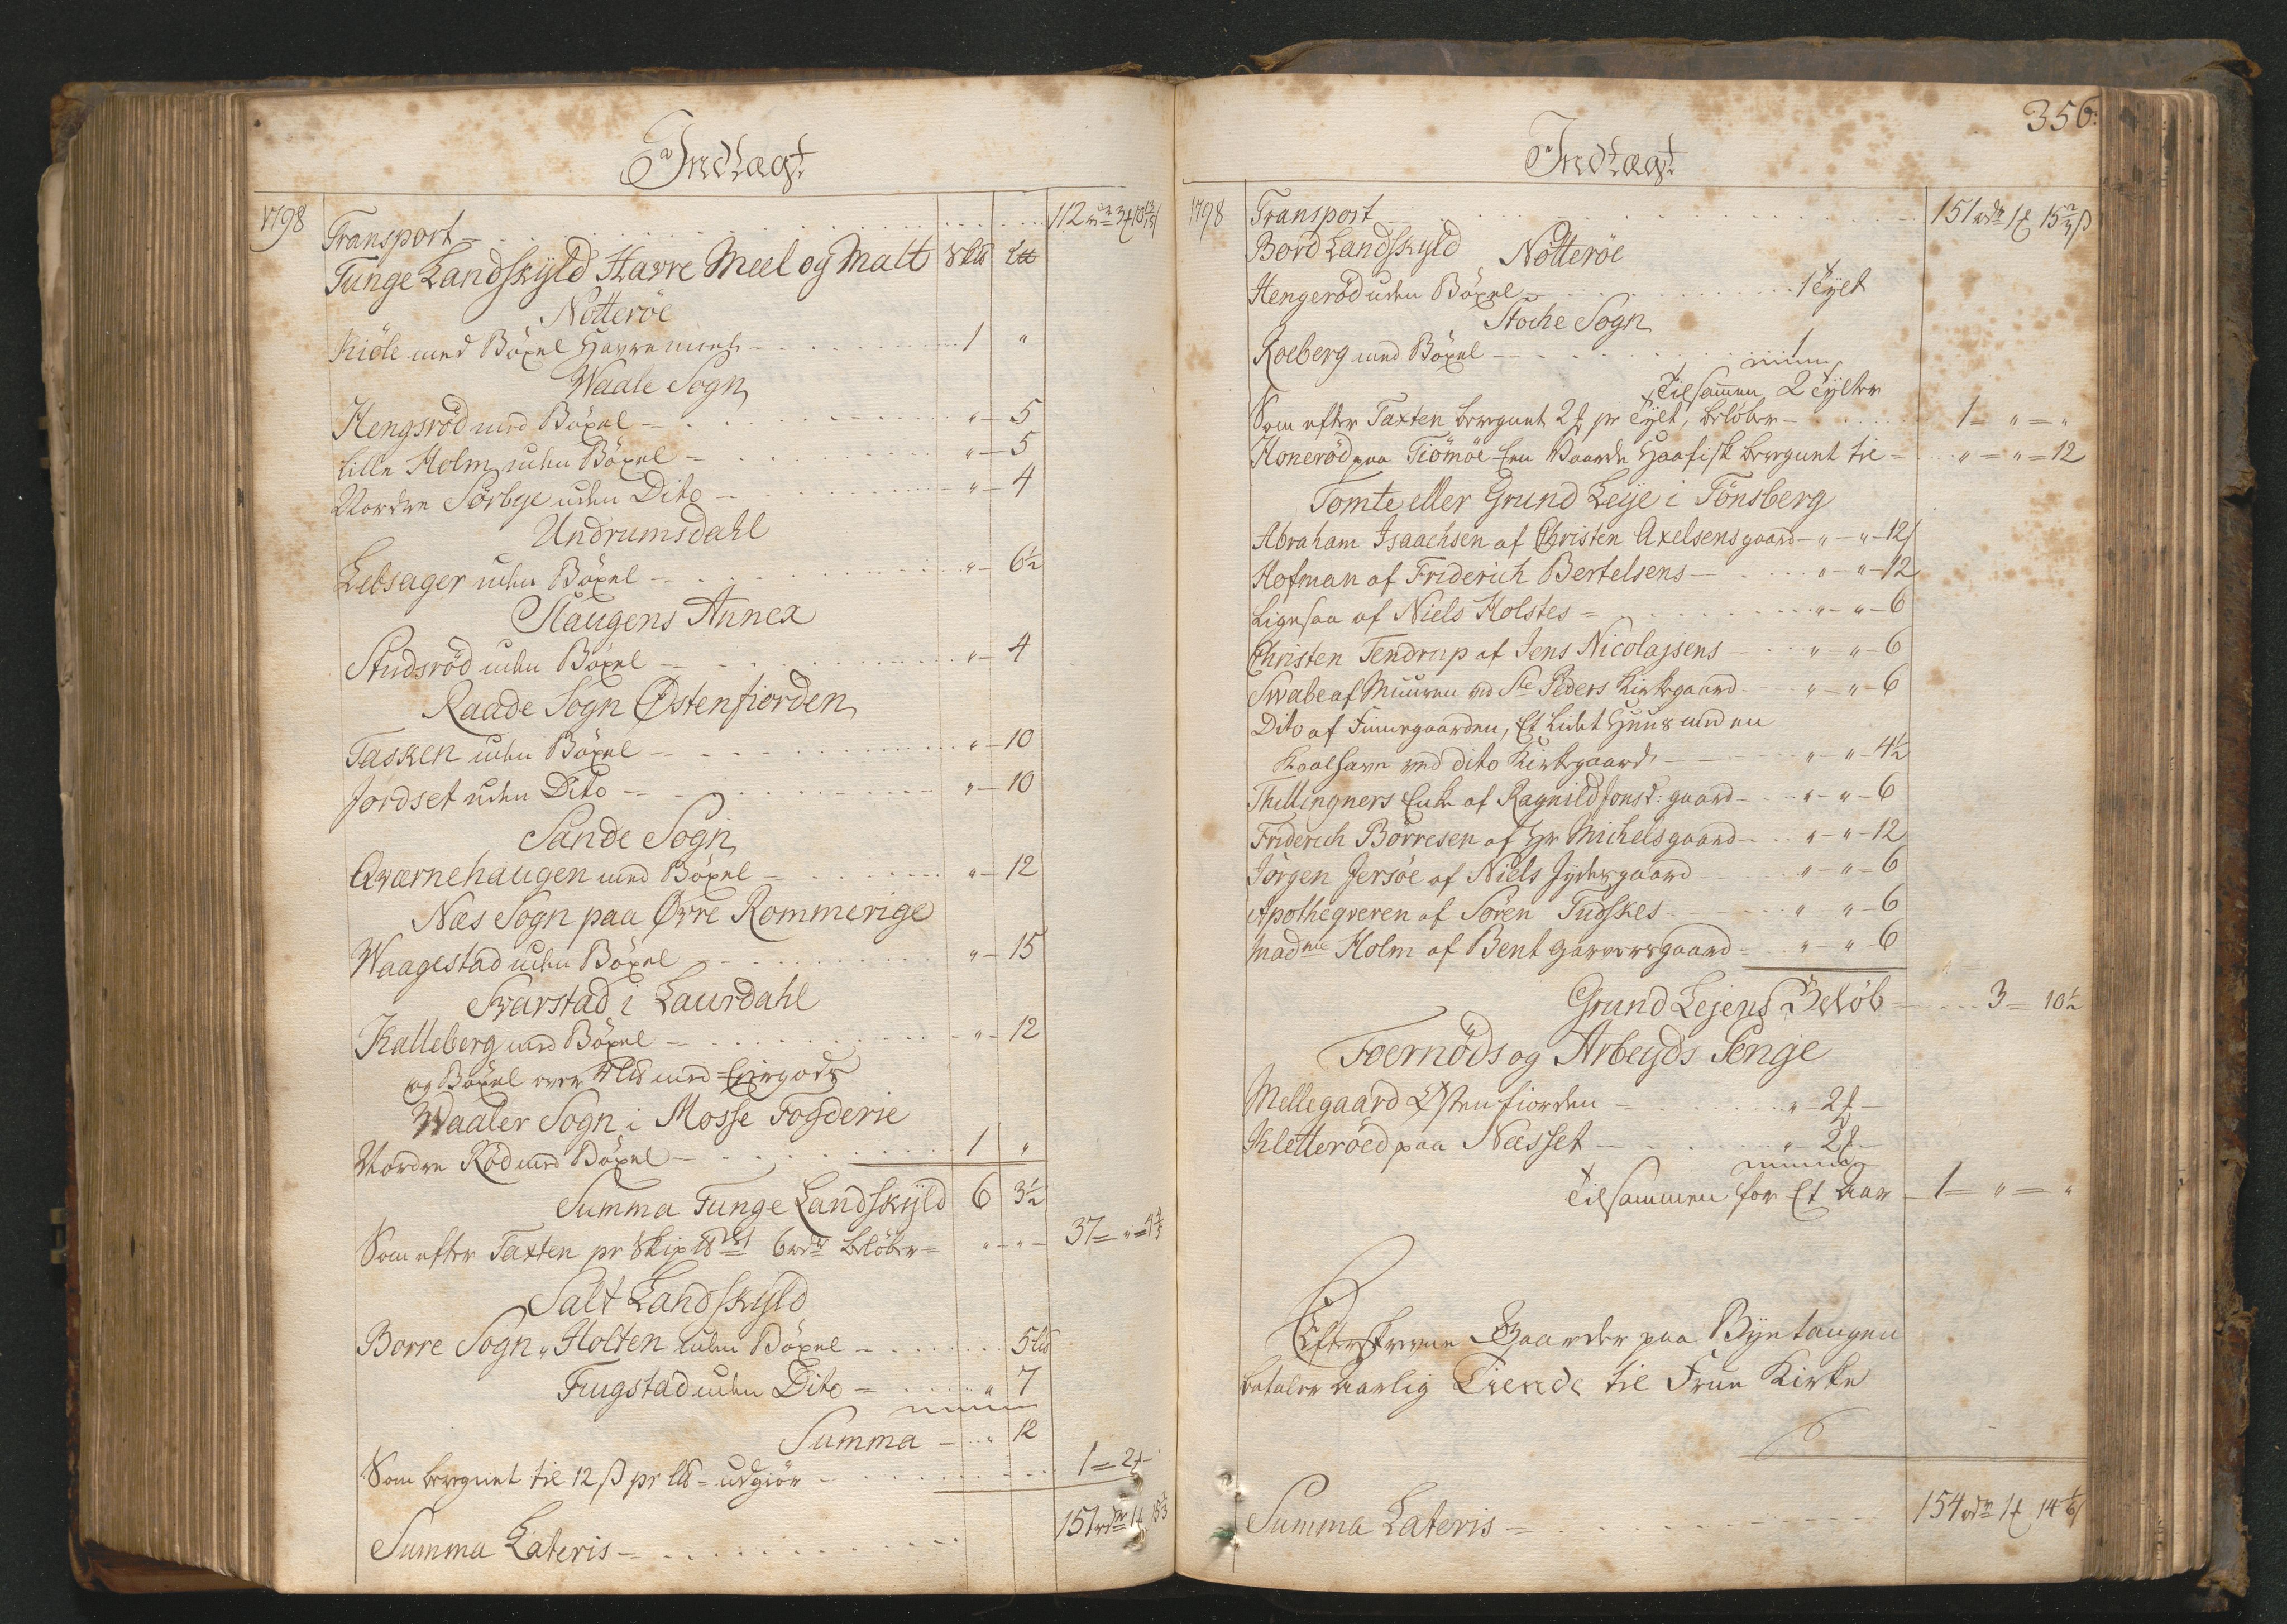 Indtægt
1798 Transport 112 rdr 3
Tunge Landskyld Havre Meel og Malt Sklb Lb
Nötteröe
Kiöle med Böxel Havremeel 1 "
Waale Sogn
Hengsröd med Böxel " 5
Lille Holm uden Böxel " 5
Nordre Sörbye uden Dito " 4
Undrumsdahl
Lebsager uden Böxel " 6½
Slaugens Annex
Studsröd uden Böxel " 4
Raade Sogn Østenfiorden
Tasken uden Böxel " 10
Jördset uden Dito " 10
Sande Sogn
Qværnehaugen med Böxel " 12
Næs Sogn paa Øvre Rommerige
Waagestad uden Böxel " 15
Svarstad i Laurdahl
Kalleberg med Böxel " 12
og Böxel over med
Waaler Sogn i Mosse Fogderie
Nordre Röd med Böxel 1 "
Summa Tunge Landskyld 6 3½
Som efter Taxten pr Skip lb 6 rdr belöber " " 37 = " =
Salt Landskyld
Borre Sogn, Holten uden Böxel 5 Lb
Fuugstad uden Dito " 7
Summa " 12
Som beregnet til 12 ß pr Lb udgiör 1 = 2
Summa Lateris 151 rdr 1
356.
Indtægt
1798 Transport 151 rdr 1 15
Bord Landskyld Nötteröe
Hengeröd uden Böxel 1 Tylt
Stoche Sogn
Roeberg med Böxel 1
Tilsammen 2 Tylter
Som efter Taxten beregnet 2 pr Tylt, belöber 1 = " = "
Honeröd paa Tiömöe Een Vaarde Haafisk beregnet til " = " = 12
Tomte eller Grund Leye i Tönsberg
Abraham Isaachsen af Christen Axelsens gaard " " 12
Hofman af Friderich Bertelsens " " 12
Ligesaa af Niels Holstes " " 6
Christen Tendrup af Jens Nicolajsens " " 6
Swabe af Muuren ved Ste Peders Kirkegaard " " 6
Dito af Finnegaarden, Et Lidet Huus med en
Kaalhave ved dito Kirkegaard " " 4½
Thellingners Enke af Ragnild Jonsd: gaard " " 6
Friderich Börresen af Hr Michels gaard " " 12
Jörgen Jersöe af Niels Jydesgaard " " 6
Apothegveren af Sören Tudskes " " 6
Madme Holm af Bent Garversgaard " " 6
Grund Lejens Belöb 3 = 10½
Foernöds og Arbeyds Penge
Mellegaard Østenfiorden " 2
Kletteröed paa Næsset " 2
Tilsammen for Et Aar 1 = " = "
Efterskrevne Gaarder paa Byetangen
betaler Aarlig Tiende til Frue Kirke
Summa Lateris 154 rdr 1 14